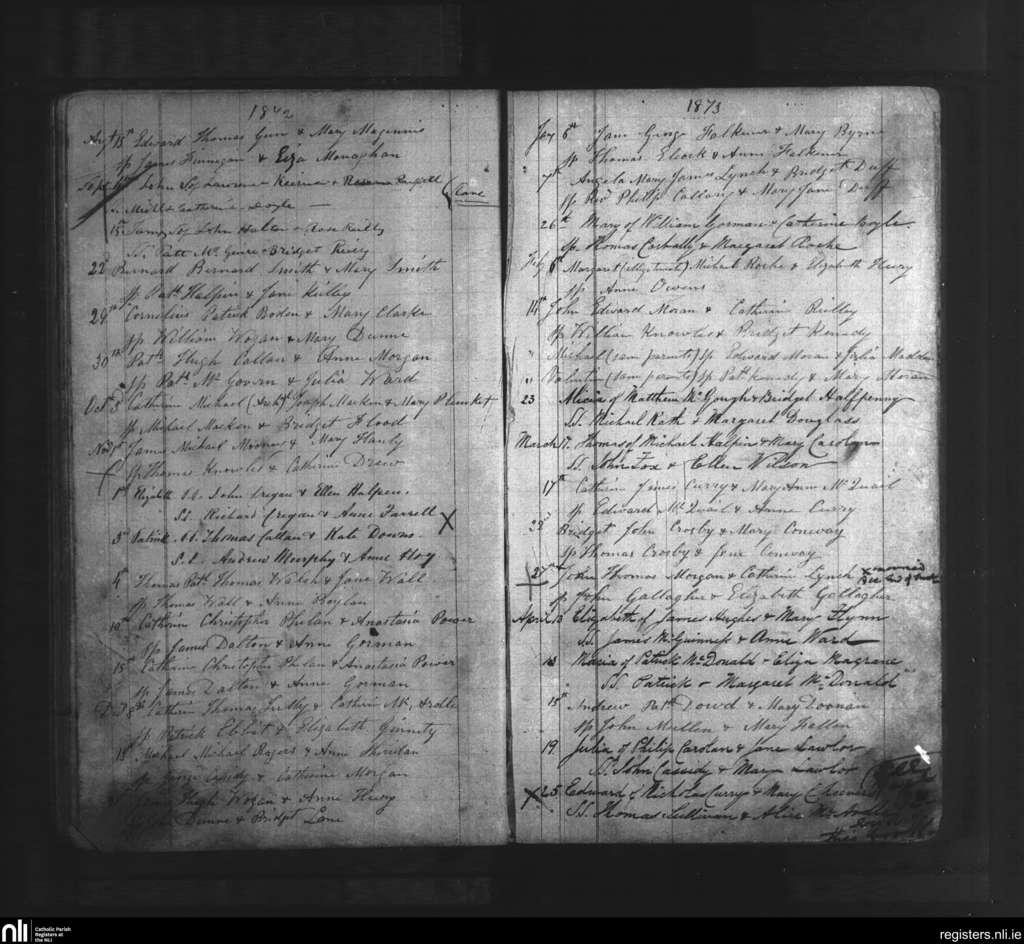 1842
Augt 18th Edward Thomas Gunn & Mary Maginnis
sp James Finnegan & Eliza Monaghan
Sept John Laurence Keirnan &
Michl & Catherine Doyle
(Cane
15 James of John Halton & Rose Reilly
SS. Patt Mc Guire & Bridget Reilly
22d Bernard Bernard Smith & Mary Smith
sp Patk Halpin & Jane Kelley
29th Cornelius Patrick Boden & Mary Clarke
sp William Wogan & Mary Dunne
30th Patk Hugh Callan & Anne Morgan
sp Patk Mc Govern & Julia Ward
Octr 5 Catherine Michael Joseph Macken & Mary Plunket
sp Michael Macken & Bridget Flood
Novr 1st James Michael Murray & Mary Hanly
sp Thomas Knowles & Catherine Drew
1st Elizabeth John Cregan & Ellen Halpen.
SS. Richard Cregan & Anne Farrell X
3d Patrick Thomas Callan & Kate Downs.
S.S. Andrew Murphy & Anne Hoy
4th Thomas Patk Thomas Walsh & Jane Wall
sp Thomas Wall & Anne Boylan
10th Catherine Christopher Phelan & Anastasia Power
sp James Dalton & Anne Gorman
15th Catherine Christopher Phelan & Anastasia Power
sp James Dalton & Anne Gorman
8th Catherine Thomas & Catherine
sp Patrick & Elizabeth Ginnity
18 Michael Michael Rogers & Anne Sheridan
sp George Cassidy & Catherine Morgan
Hugh Wogan & Anne Henry
Dunne & Bridget Lane
1873
Jany 6th Jane George Falkener & Mary Byrne
sp Thomas Elcock & Anne Falkener
7th Angela Mary James Lynch & Bridget Duff
sp Revd Philip Callary & Mary Jane Duff
26th Mary of William Gorman & Catherine Boyle
sp Thomas Carbally & Margaret Roche
Feby 6th Margaret Michael Roche & Elizabeth Henry
sp Anne Owens
14th John Edward Moran & Catherine Reilley
sp William Knowles & Bridget Kennedy
" Michael (sam parents) sp Edward Moran & Julia Madden
" Valentine (sam parents) sp Patk Kennedy & Mary Moran
23 Alicia of Matthew Mc Gough & Bridget Halfpenny
SS. Michael Rath & Margaret Douglass
March 17. Thomas of Michael Halpin & Mary Carolan
SS. John Fox & Ellen Wilson
17th Catherine James Curry & Mary Anne Mc Quail
sp Edward Mc Quail & Anne Curry
22d Bridget John Crosby & Mary Conway
sp Thomas Crosby & Jane Conway
27th John Thomas Morgan & Catherine Lynch X married
See End of book
sp John Gallagher & Elizabeth Gallagher
April 13 Elizabeth of James Hughes & Mary Flynn
SS. James Mc Guinness & Anne Ward
13 Maria of Patrick Mc Donald & Eliza Magrane
SS. Patrick & Margaret Mc Donald
15th Andrew Patk Dowd & Mary Noonan
sp John Mullen & Mary Fallon
19. Julia of Philip Carolan & Jane Lawlor
SS. John Cassidy & Mary Lawlor
X 25 Edward of Nicholas Curry & Mary
SS. Thomas Sullivan & Alice
nli
Catholic Parish
Registers at
the NLI
registers.nli.ie